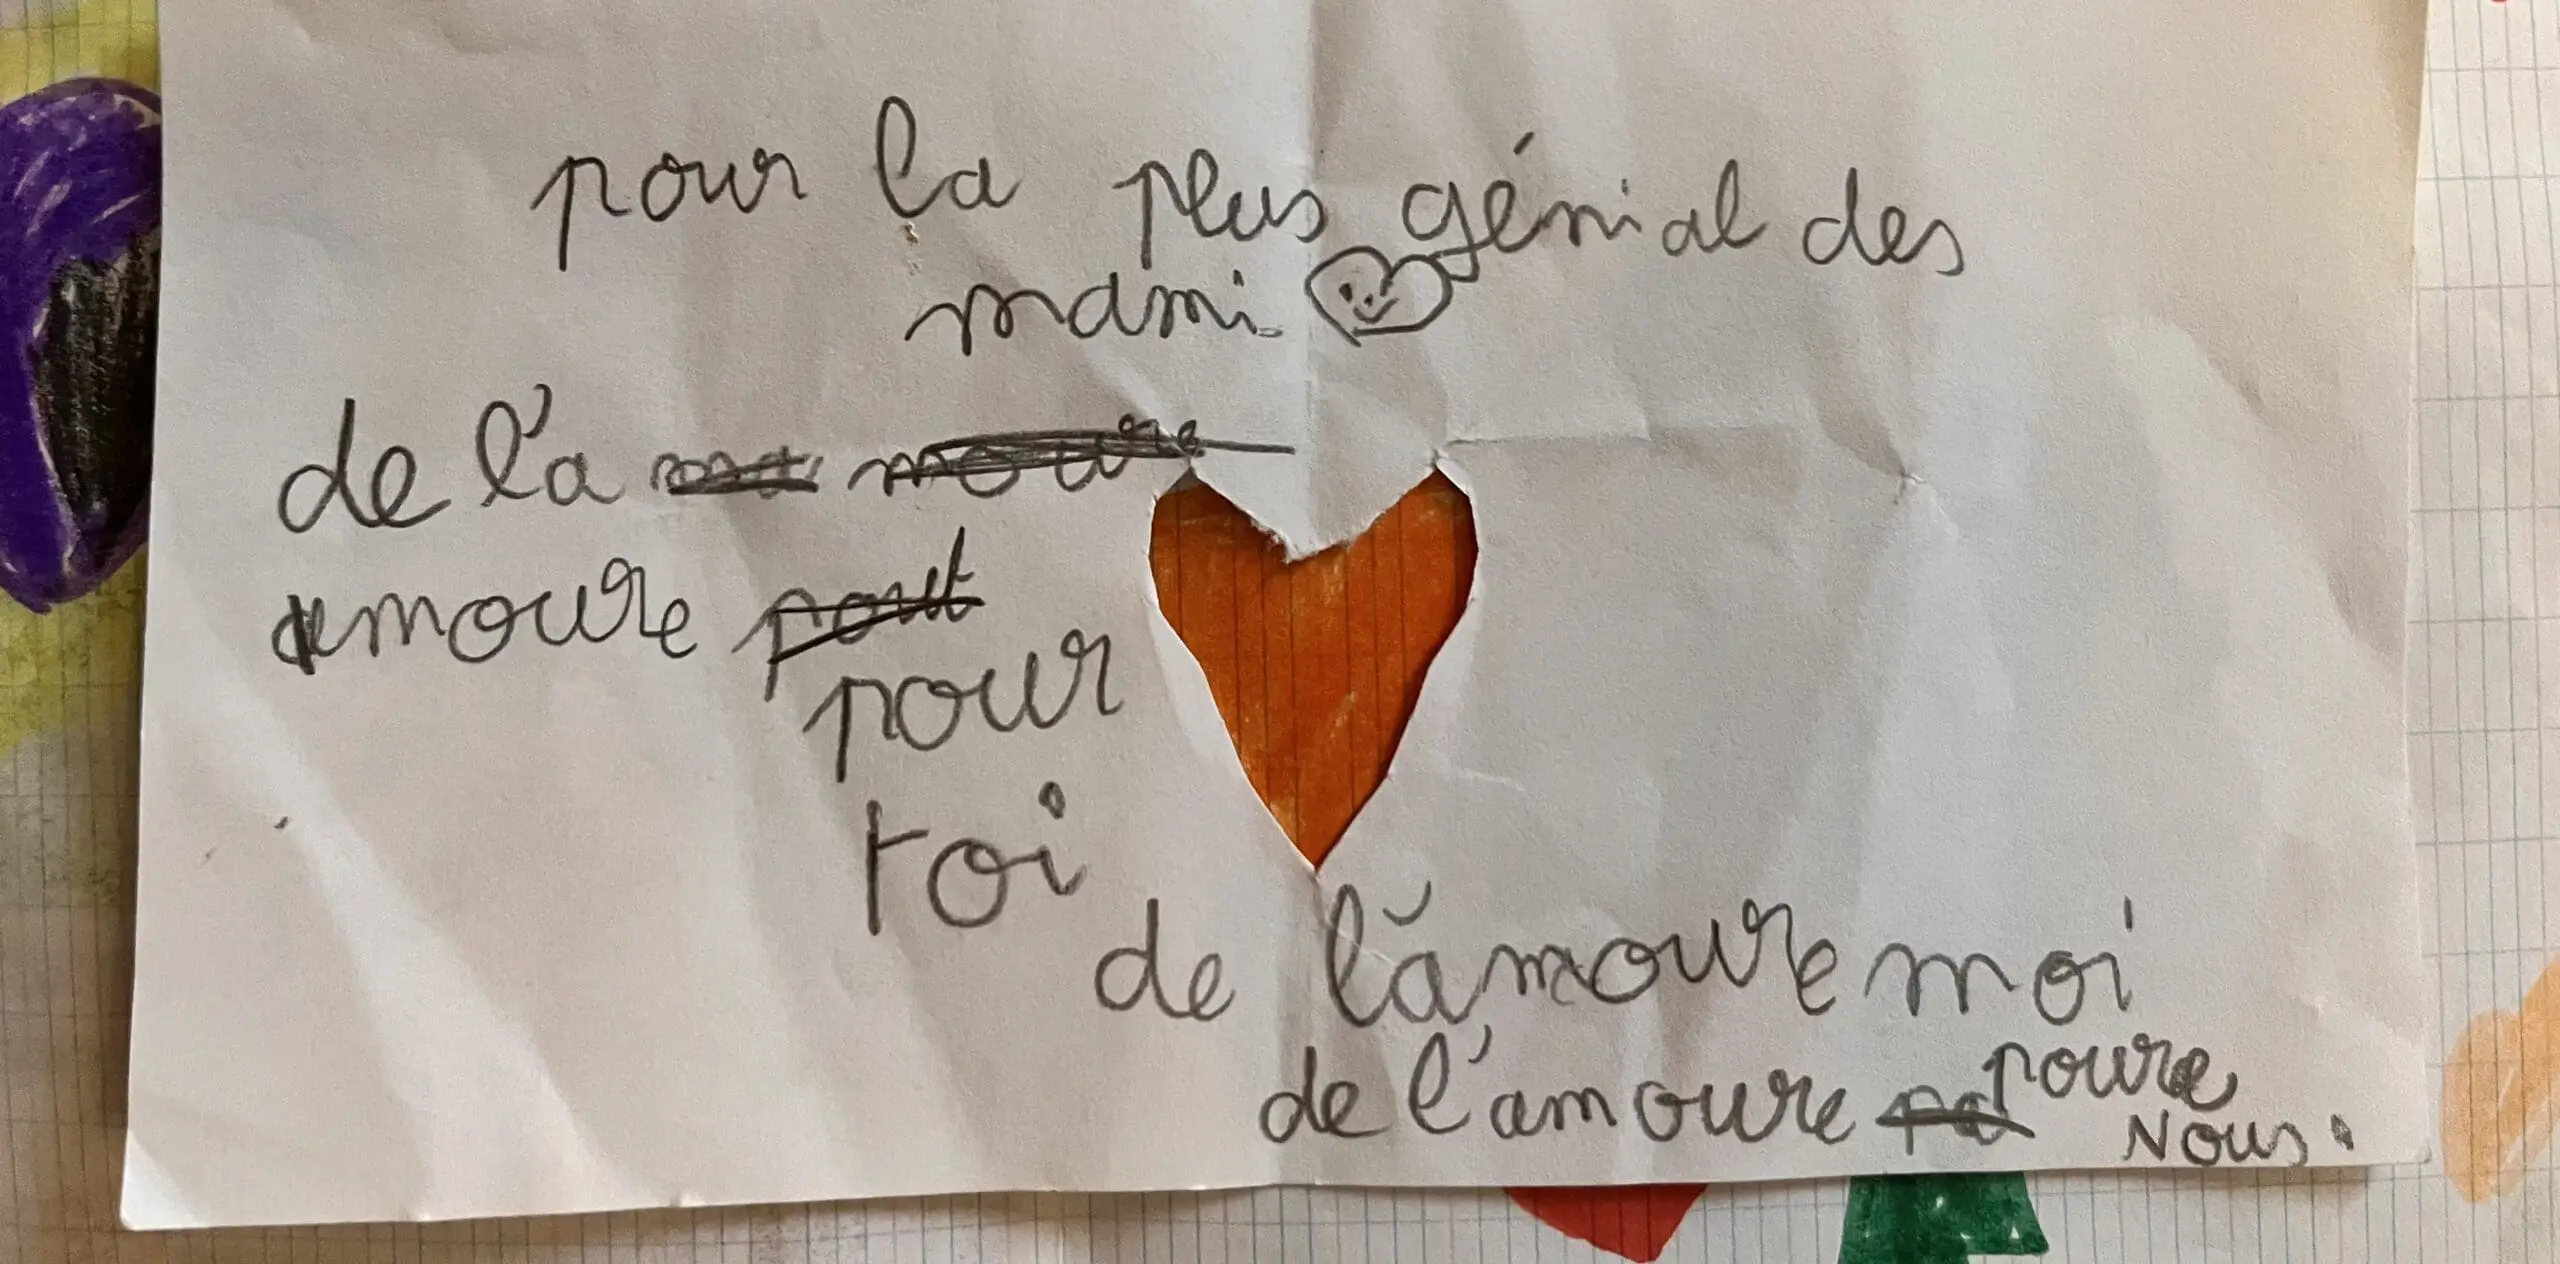 pour la plus génial des
mami
de l'a ma moure
amoure pout
pour
toi
de l'amoure moi
de l'amoure po poure
nous.